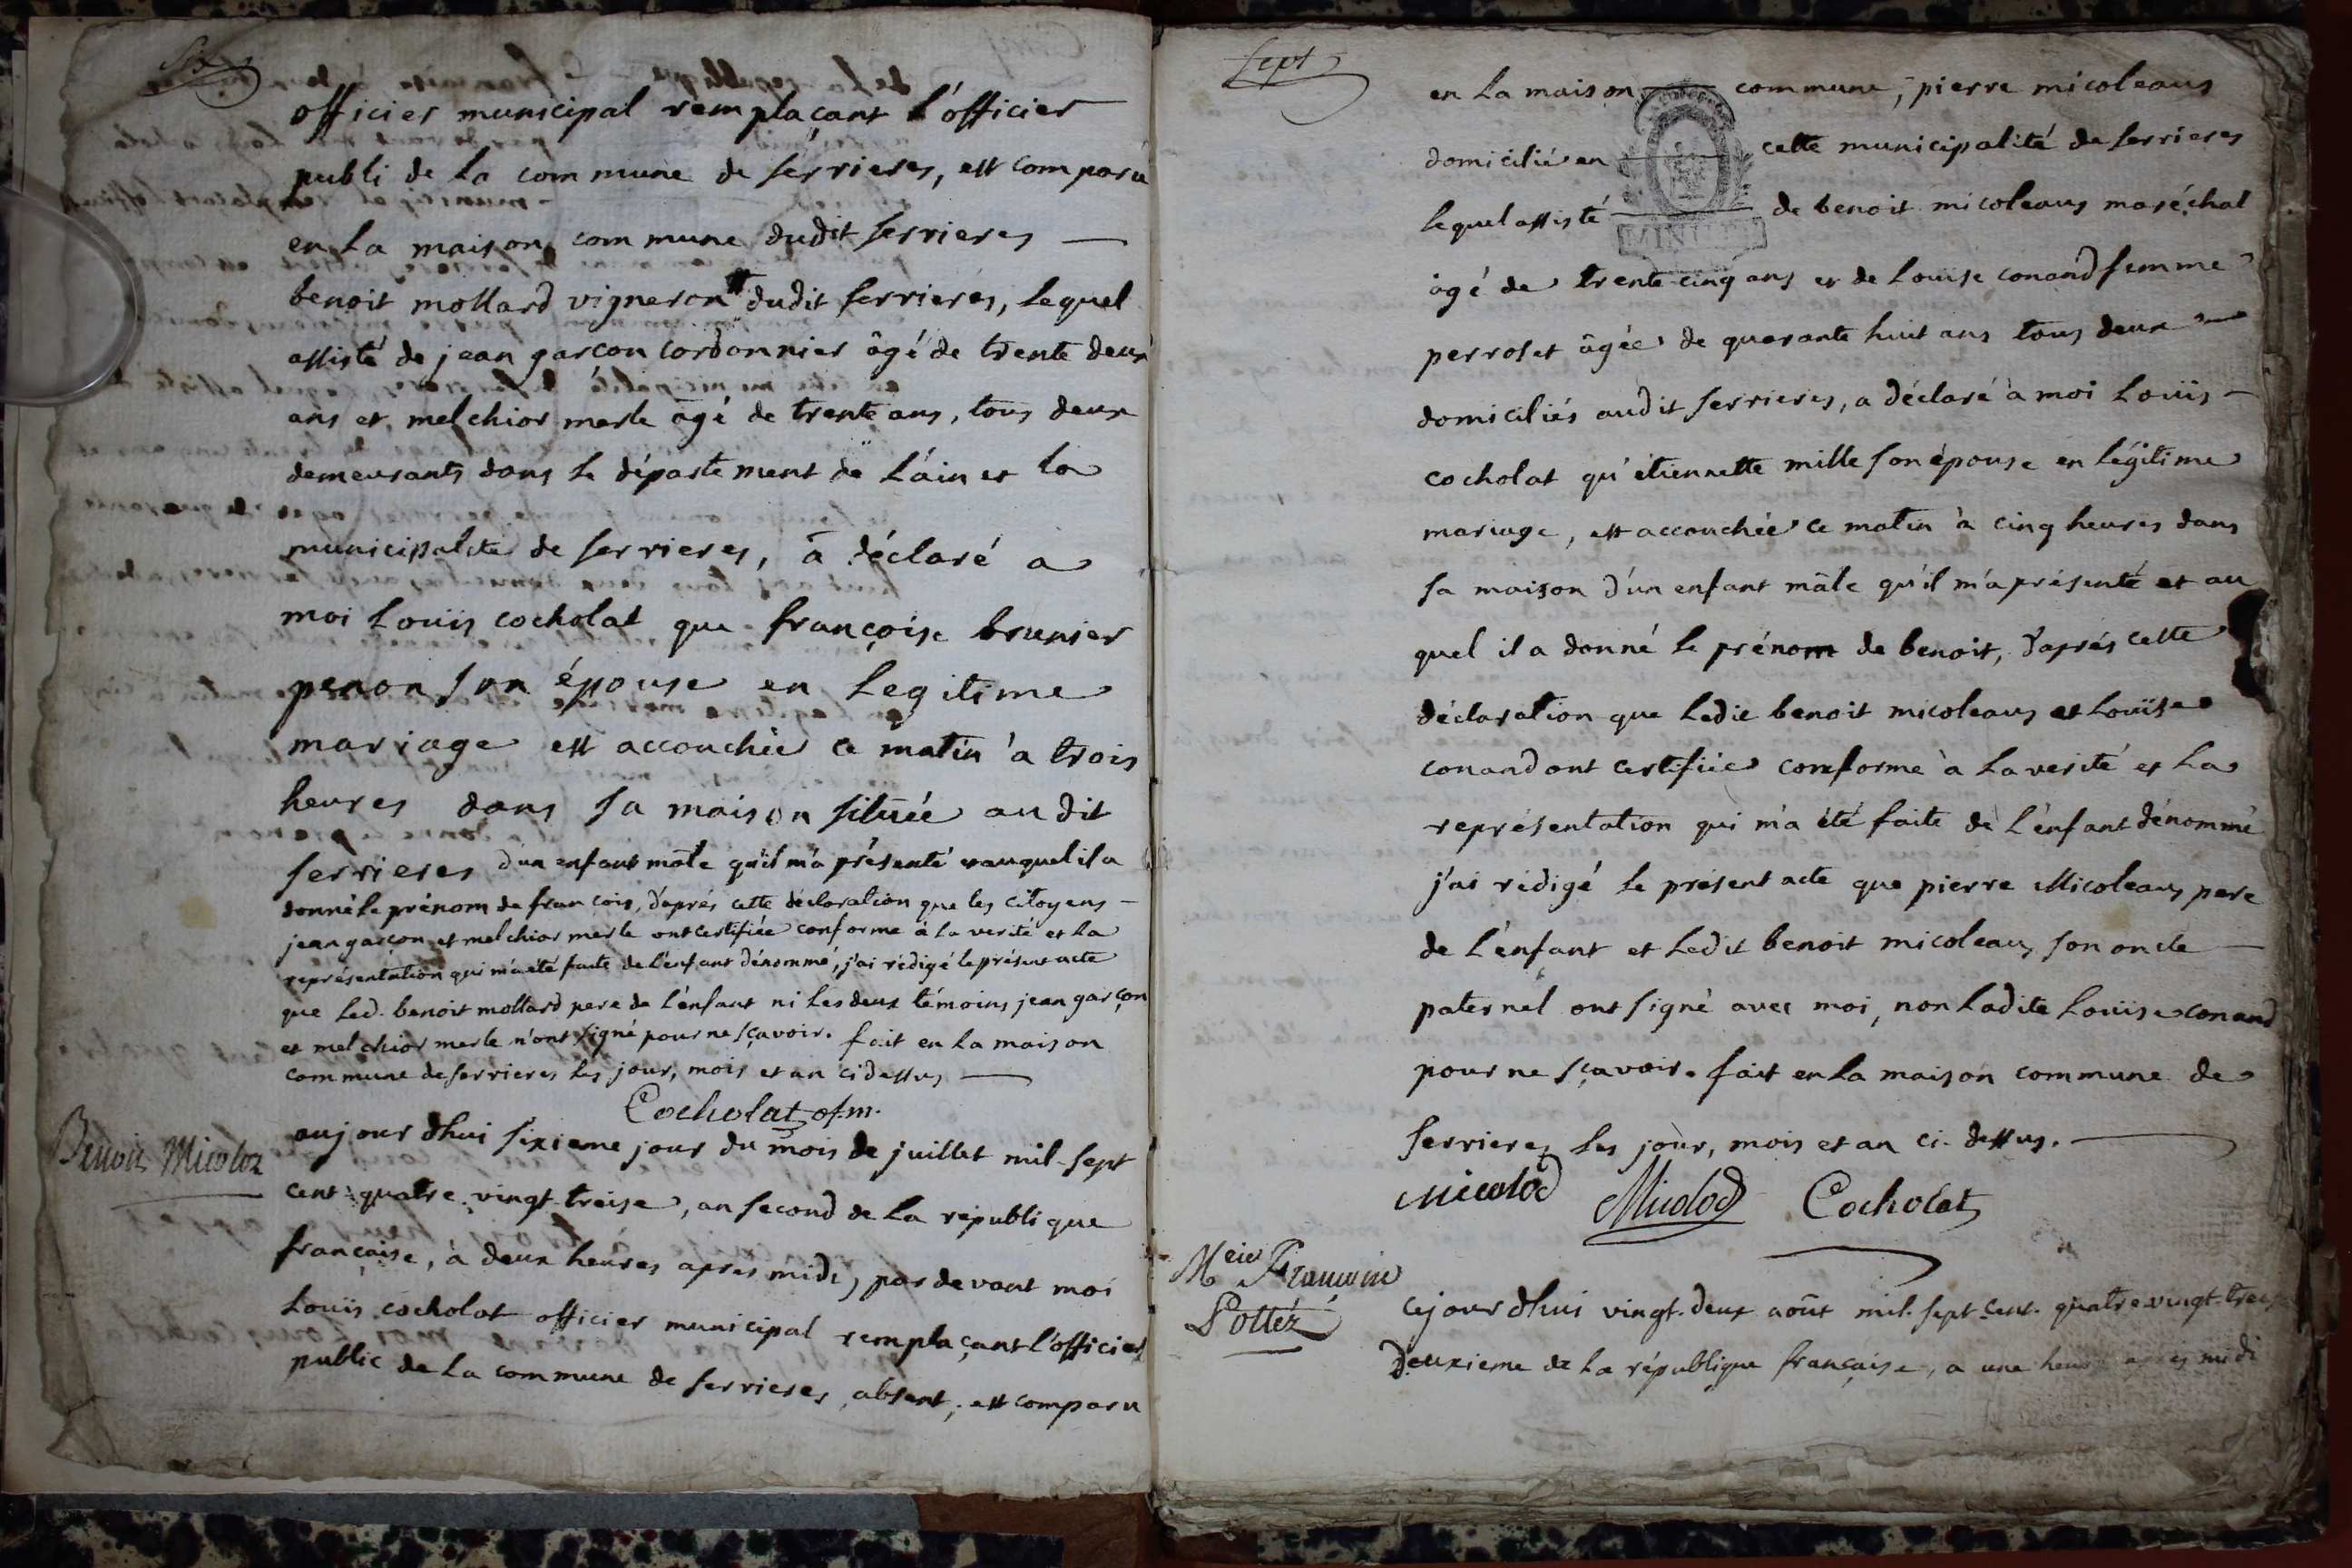 Six
officier municipal remplaçant l'officier
publi de la commune de serrieres, est comparu
en la maison commune dudit serrieres
benoit mollard vigneron dudit serrieres, lequel
assisté de jean garçon cordonnier âgé de trente deux
ans et melchior merle âgé de trente ans, tous deux
demeurants dans le département de l'ain et la
municipalité de serrieres, à déclaré a
moi Louis cocholat que françoise brunier
penon son épouse en legitime
mariage est accouchée ce matin à trois
heures dans sa maison située audit
serrieres d'un enfant mâle qu'il m'a présenté et auquel il a
donné le prénom de françois, d'aprés cette déclaration que les citoyens
jean garçon et melchior merle ont certifiée conforme à la verité et la
représentation qui m'a été faite de l'enfant dénommé, j'ai rédigé le présent acte
que led. benoit mollard pere de l'enfant ni les deux témoins jean garçon
et melchior merle n'ont signé pour ne sçavoir. fait en la maison
commune de serrieres les jour, mois et an ci dessus
Cocholat of.m.
Benoit Micoloz
aujourdhui sixieme jour du mois de juillet mil-sept
cent quatre-vingt-treise, an second de la république
française, à deux heures apres midi, pardevant moi
Louis cocholat officier municipal remplaçant l'officier
public de la commune de serrieres absent, est comparu
Sept
en la maison commune, pierre micoleaus
domicilié en cette municipalité de serrieres
lequel assisté de benoit micoleaus maréchal
MINUTE
âgé de trente-cinq ans et de Louise conand femme
perroset âgée de quarante huit ans tous deux
domiciliés audit serrieres, a déclaré à moi Louis
cocholat qu'étiennette mille son épouse en légitime
mariage, est accouchée ce matin à cinq heures dans
sa maison d'un enfant mâle qu'il m'a présenté et au
quel il a donné le prénom de benoit, d'aprés cette
déclaration que ledit benoit micoleaus et Louise
conand ont certifiée conforme à la verité et la
représentation qui m'a été faite de l'enfant dénommé
j'ai rédigé le présent acte que pierre Micoleaus pere
de l'enfant et ledit benoit micoleaus son oncle
paternel ont signé avec moi, non ladite Louise conand
pour ne sçavoir. fait en la maison commune de
serrieres les jour, mois et an ci-dessus.
micolod Micolod Cocholat
Meie Françoise
Pottéz
cejourdhui vingt-deux août mil-sept-cent-quatre-vingt-treise
deuxieme de la république française, a une heure apres midi